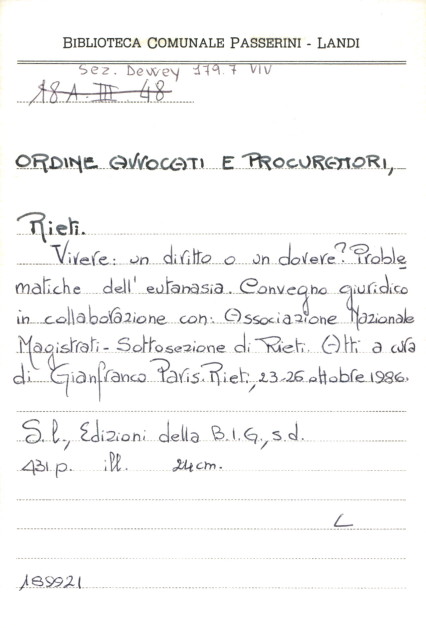 BIBLIOTECA COMUNALE PASSERINI - LANDI
Sez. Dewey 179.7 VIV
18A. III 48
ORDINE AVVOCATI E PROCURATORI,
Rieti.
Vivere: un diritto o un dovere? Proble
matiche dell' eutanasia. Convegno giuridico
in collaborazione con: Associazione Nazionale
Magistrati - Sottosezione di Rieti. Atti a cura
di Gianfranco Paris. Rieti, 23-26 ottobre 1986.
S. l., Edizioni della B.I.G., s.d.
431 p. ill. 24 cm.
L
189921